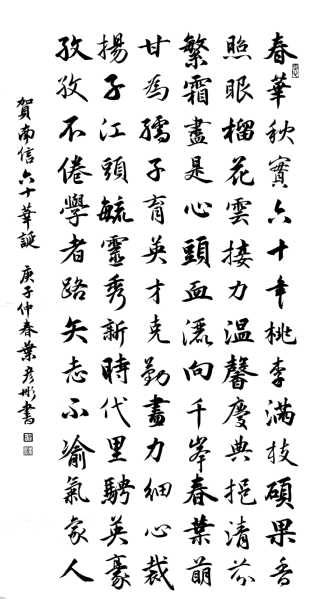 春華秋實六十年桃李滿枝碩果香
照眼榴花雲接力溫馨慶典挹清芬
繁霜盡是心頭血灑向千峯春葉萌
甘為孺子育英才克勤盡力細心裁
揚子江頭毓靈秀新時代里騁英豪
孜孜不倦學者路矢志不渝氣象人
賀南信六十華誕 庚子仲春葉彥彬書